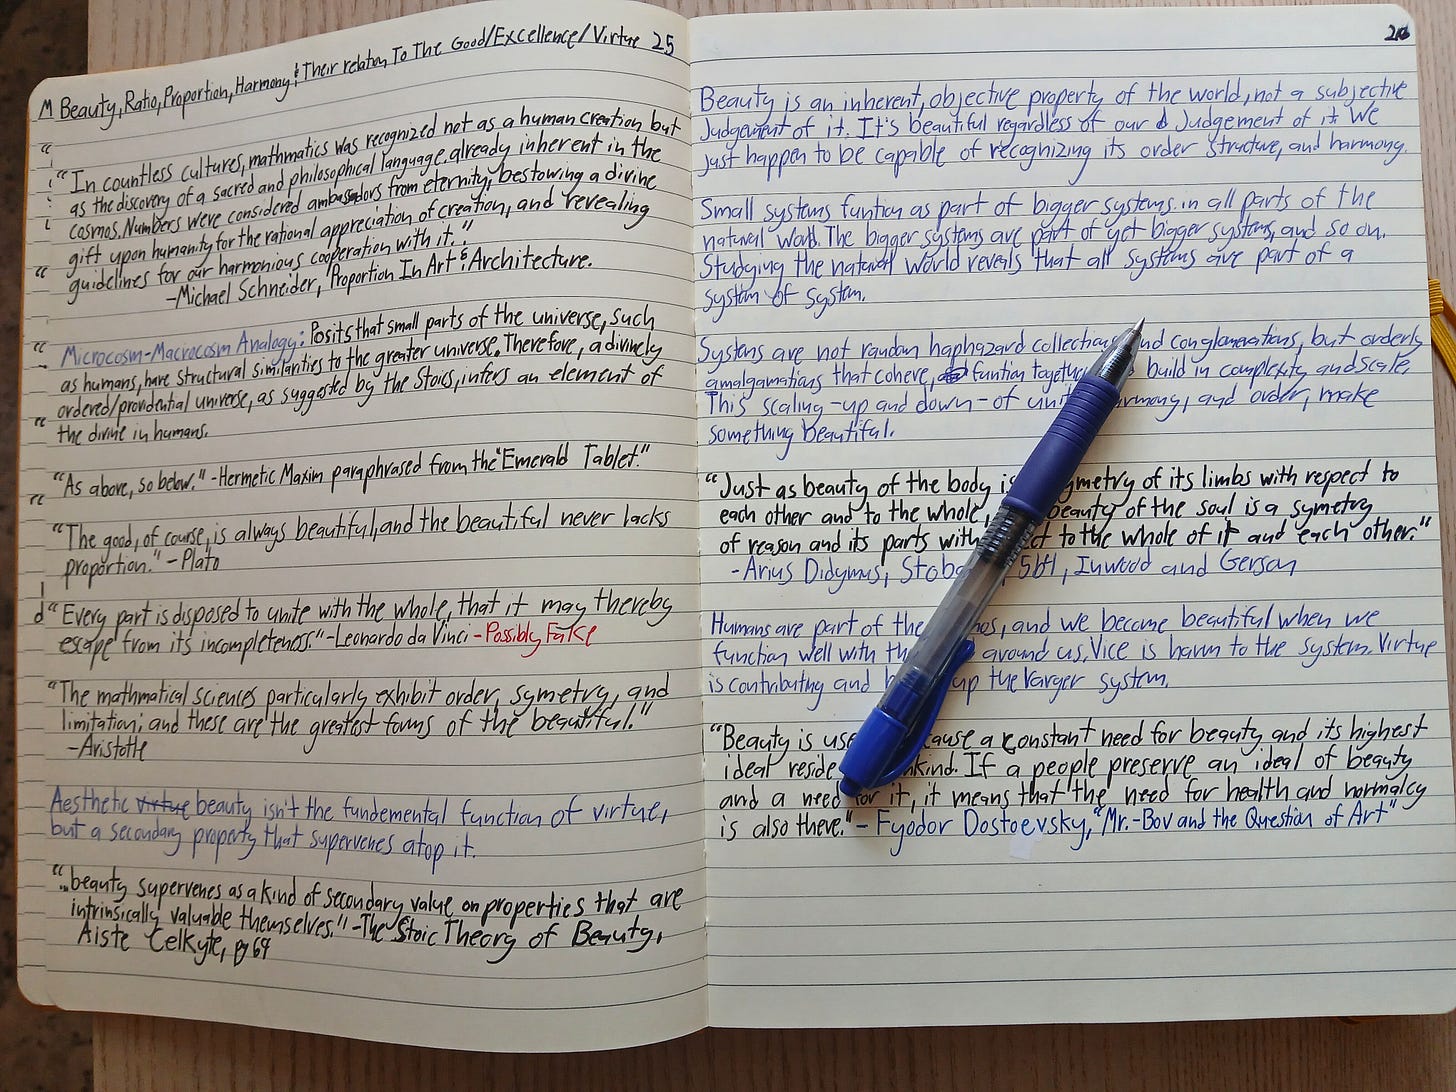 M Beauty, Ratio, Proportion, Harmony & Their relation To The Good/Excellence/Virtue 25
"In countless cultures, mathmatics was recognized not as a human creation but
as the discovery of a sacred and philosophical language already inherent in the
cosmos. Numbers were considered ambassadors from eternity, bestowing a divine
gift upon humanity for the rational appreciation of creation, and revealing
guidelines for our harmonious cooperation with it."
-Michael Schneider, Proportion In Art & Architecture.
Microcosm-Macrocosm Analogy: Posits that small parts of the universe, such
as humans, have structural similarities to the greater universe. Therefore, a divinely
ordered/providential universe, as suggested by the Stoics, infers an element of
the divine in humans.
"As above, so below." -Hermetic Maxim paraphrased from the "Emerald Tablet."
"The good, of course, is always beautiful, and the beautiful never lacks
proportion." -Plato
"Every part is disposed to unite with the whole, that it may thereby
escape from its incompleteness." -Leonardo da Vinci -Possibly Fake
"The mathmatical sciences particularly exhibit order, symetry, and
limitation; and these are the greatest forms of the beautiful."
-Aristotle
Aesthetic virtue beauty isn't the fundemental function of virtue,
but a secondary property that supervenes atop it.
"...beauty supervenes as a kind of secondary value on properties that are
intrinsically valuable themselves." -The Stoic Theory of Beauty,
Aiste Celkyte, pg 64
Beauty is an inherent, objective property of the world, not a subjective
Judgement of it. It's beautiful regardless of our Judgement of it. We
just happen to be capable of recognizing its order structure, and harmony.
Small systems funtion as part of bigger systems in all parts of the
natural world. The bigger systems are part of yet bigger systems, and so on.
Studying the natural world reveals that all systems are part of a
system of system.
Systems are not random haphazard collection nd conglomerations, but orderly
amalgamations that cohere, funtion togethe build in complexity and scale.
This scaling -up and down- of unit rmony, and order, make
something beautiful.
"Just as beauty of the body is ymetry of its limbs with respect to
each other and to the whole, beauty of the soul is a symetry
of reason and its parts with ect to the whole of it and each other."
-Arius Didymus, Stoba 5b1, Inwood and Gerson
Humans are part of the mos, and we become beautiful when we
function well with th around us. Vice is harm to the system. Virtue
is contributing and b up the larger system.
"Beauty is use cause a constant need for beauty and its highest
ideal reside nkind. If a people preserve an ideal of beauty
and a need for it, it means that the need for health and normalcy
is also there." - Fyodor Dostoevsky, "Mr. -Bov and the Question of Art"